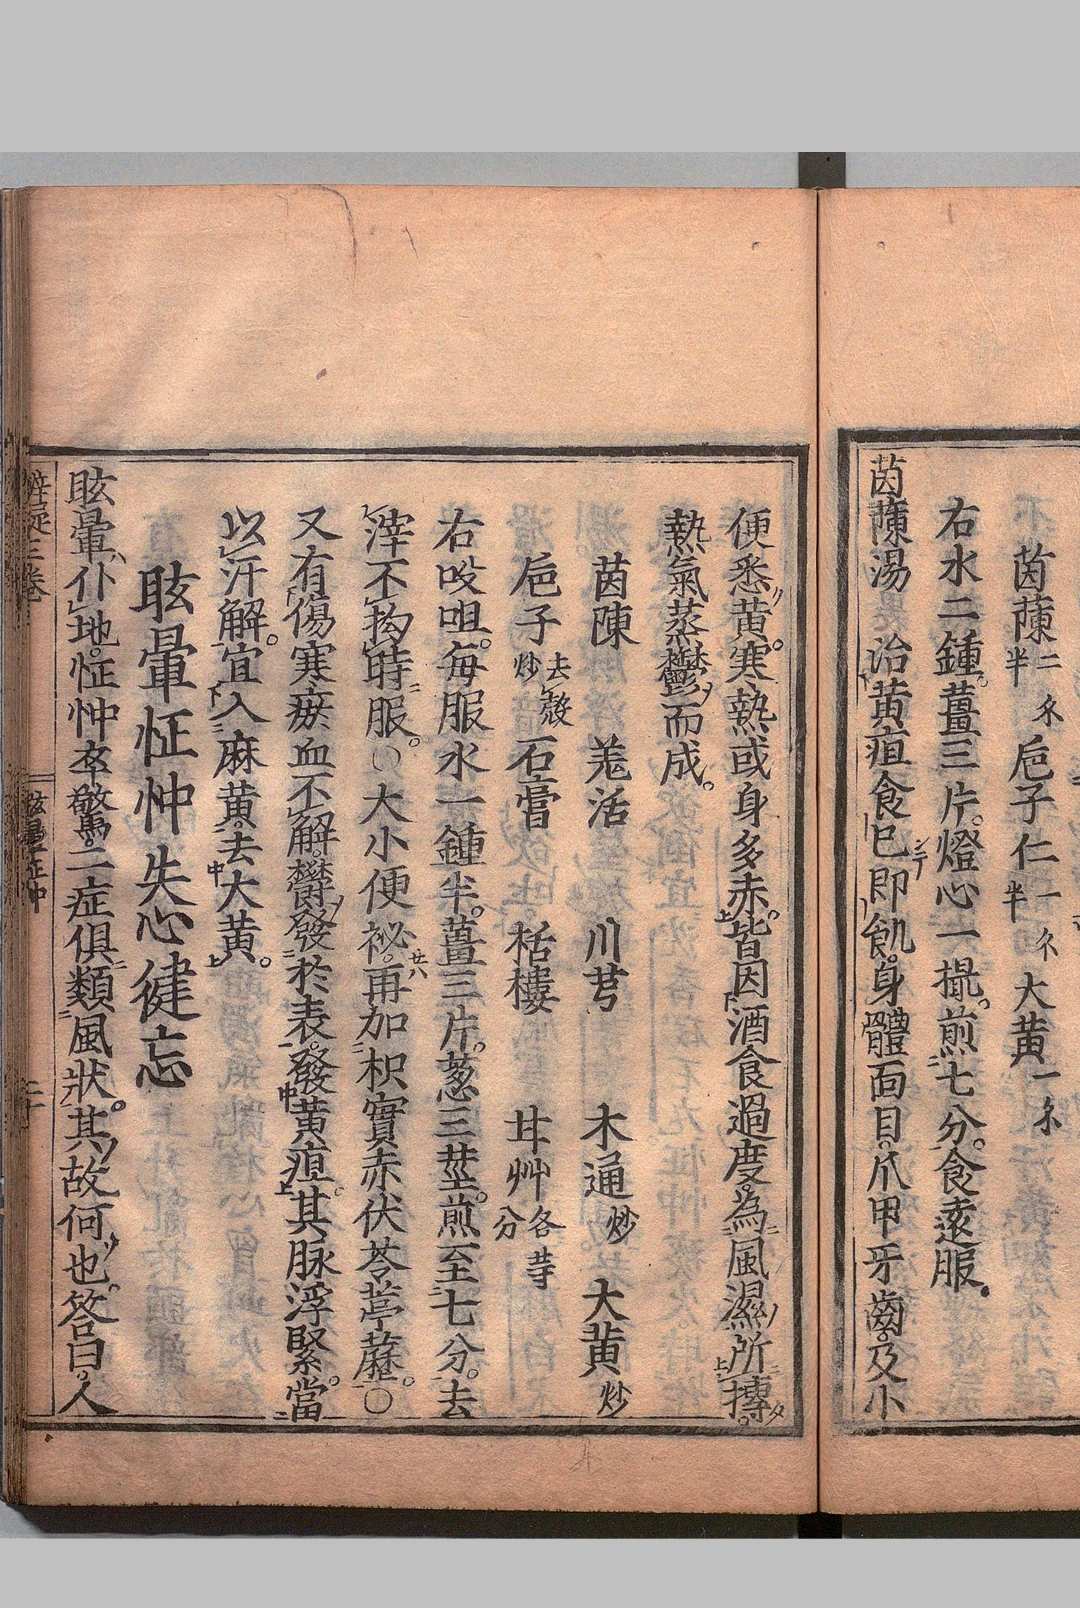 茵蔯二半 㐱 巵子仁一半 㐱 大黃一㐱
右水二鍾。薑三片。燈心一撮。煎七分。食遠服。
茵蔯湯 治黃疸食已即飢。身體面目。爪甲牙齒。及小
便悉黃。寒熱或身多赤。皆因酒食過度。為風濕所摶。
熱氣蒸鬱而成。
茵陳 羗活 川芎 木通炒 大黃炒
巵子去殼炒 石膏 栝樓 甘艸各等分
右㕮咀。每服水一鍾半。薑三片。葱三莖。煎至七分。去
滓。不拘時服。〇大小便祕。再加枳實赤伏苓葶藶。〇
又有傷寒瘀血不解。鬱發於表。發黃疸。其脉浮緊。當
以汗解。宜入麻黃。去大黃。
眩暈怔忡失心健忘
眩暈仆地。怔忡卒驚。二症俱類風狀。其故何也。答曰。人
三卷 眩暈怔忡 二十